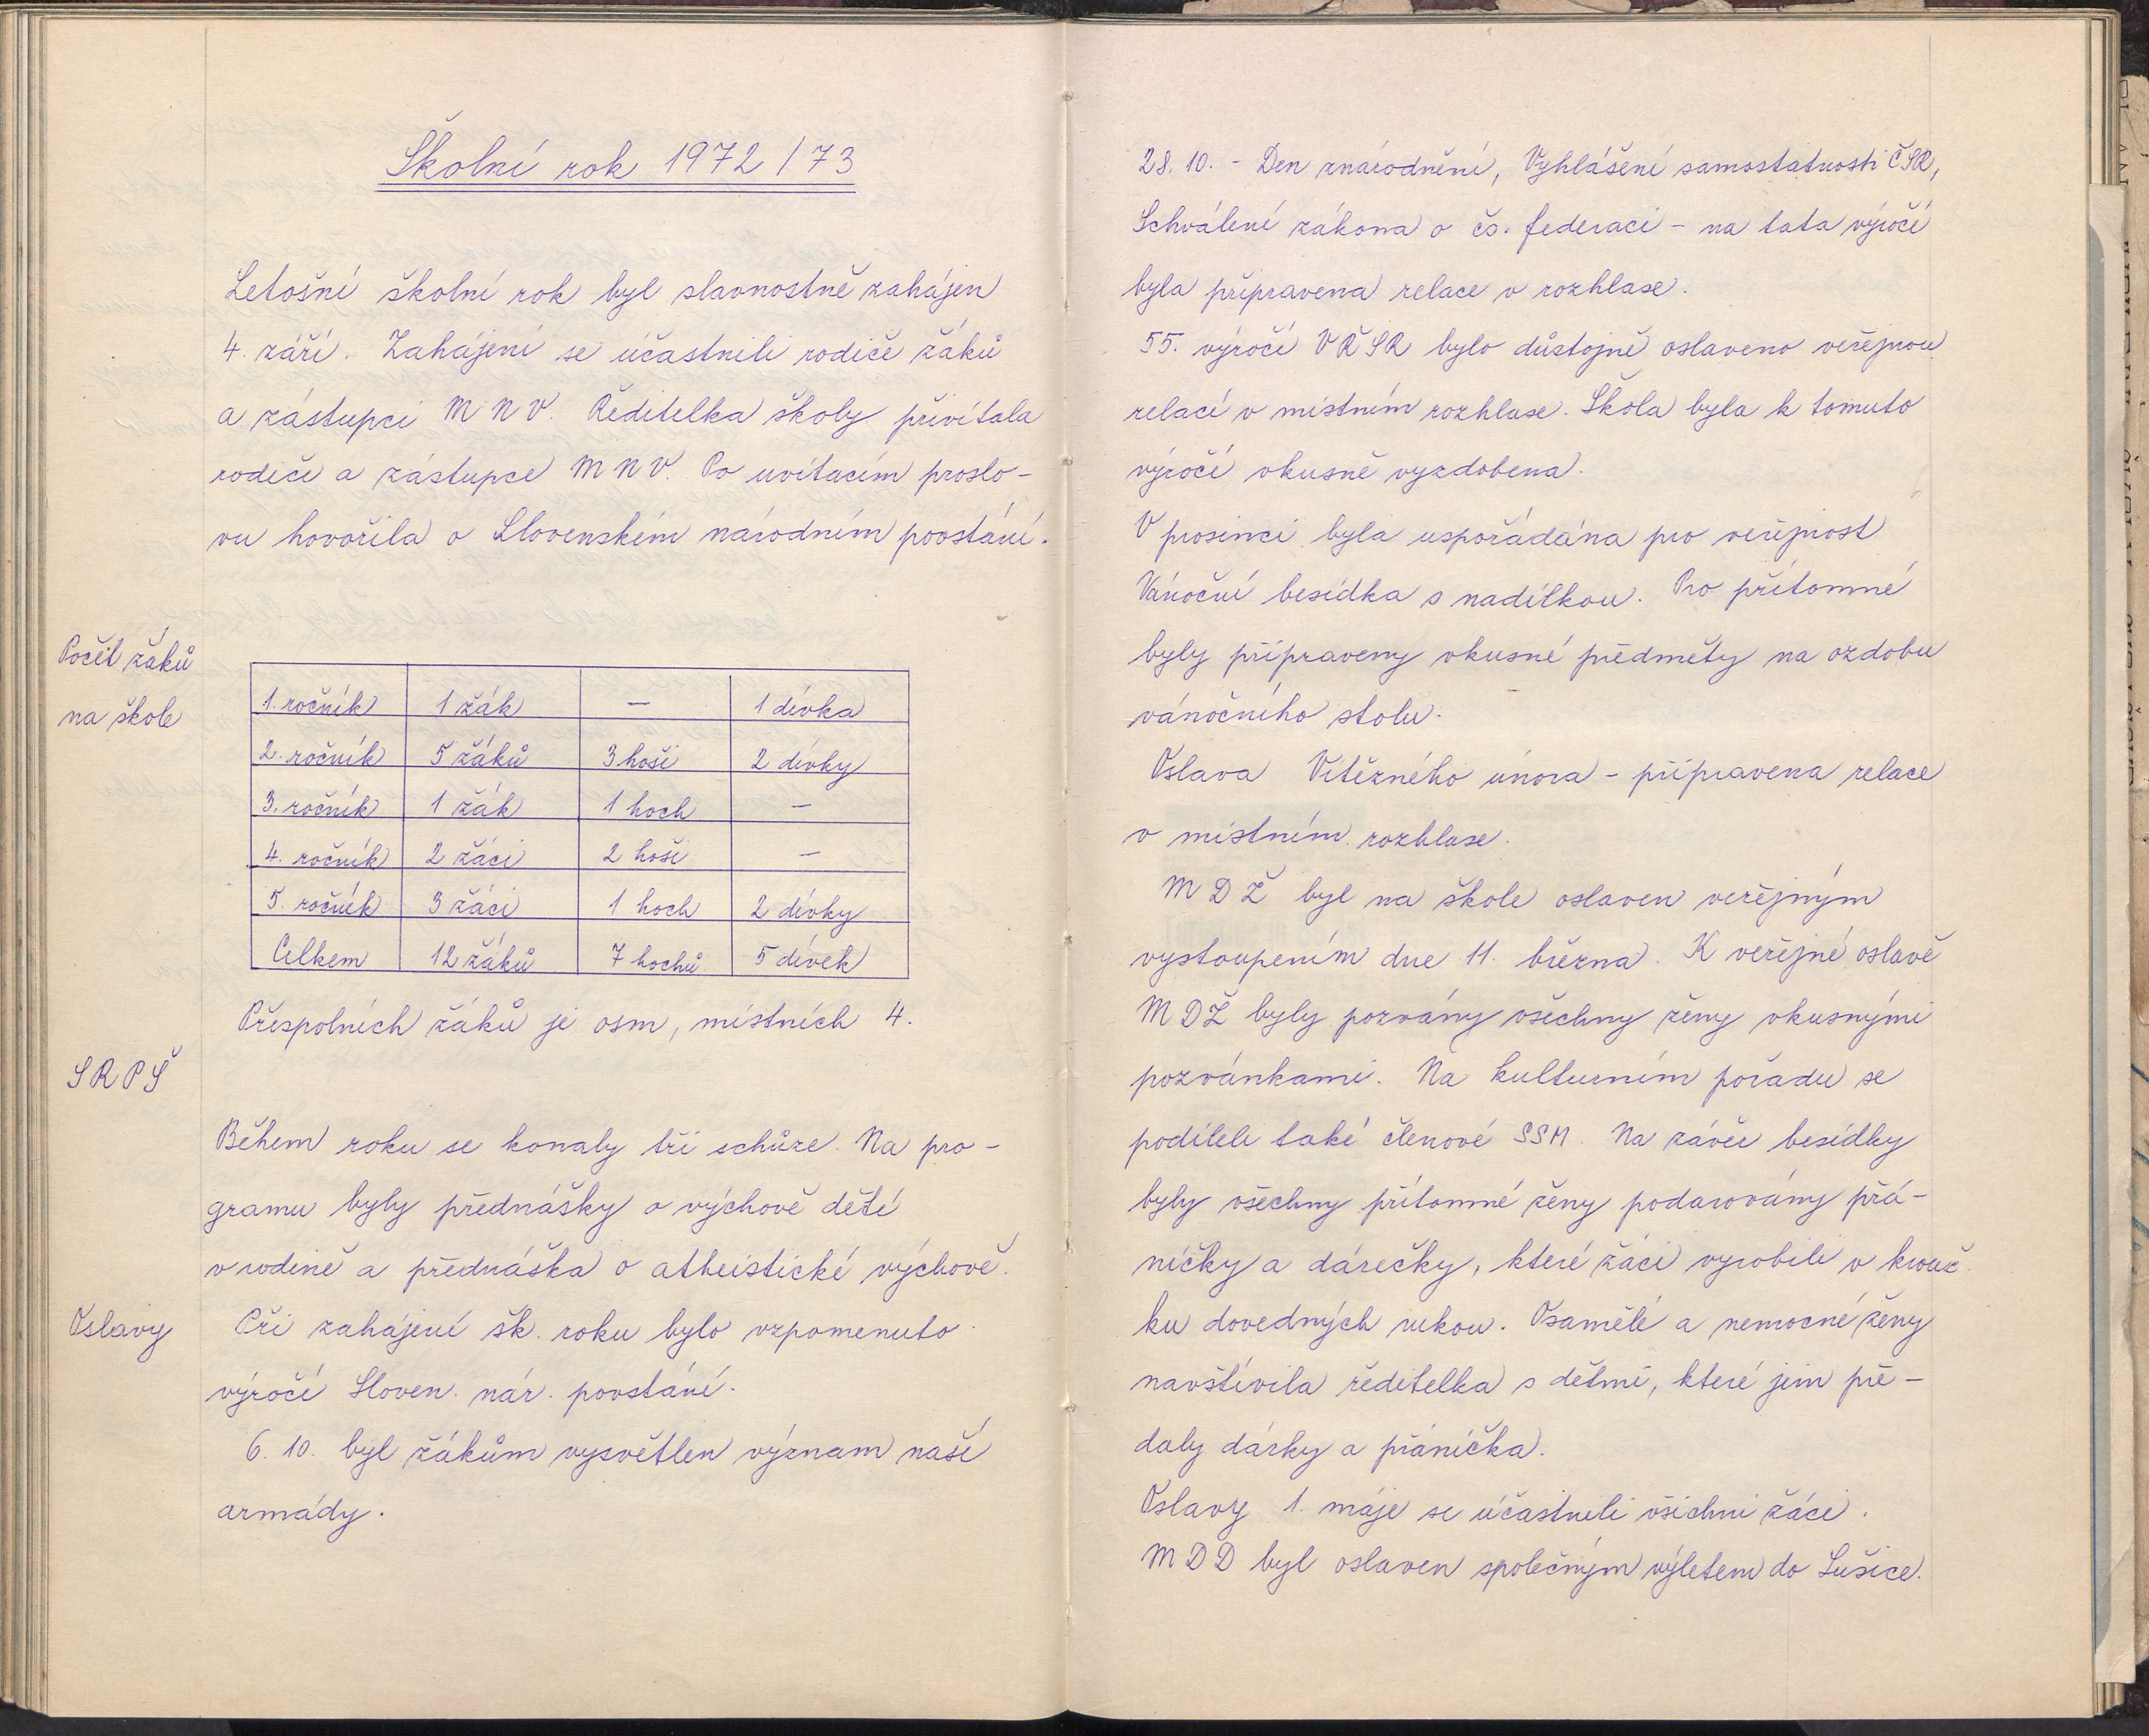 Školní rok 1972/73
Letošní školní rok byl slavnostně zahájen
4. září. Zahájení se účastnili rodiče žáků
a zástupci MNV. Ředitelka školy přivítala
rodiče a zástupce MNV. Po uvítacím proslo-
vu hovořila o Slovenském národním povstání.
Počet žáků
na škole
1. ročník 1 žák — 1 dívka
2. ročník 5 žáků 3 hoši 2 dívky
3. ročník 1 žák 1 hoch —
4. ročník 2 žáci 2 hoši —
5. ročník 3 žáci 1 hoch 2 dívky
Celkem 12 žáků 7 hochů 5 dívek
Přespolních žáků je osm, místních 4.
SRPŠ
Během roku se konaly tři schůze. Na pro-
gramu byly přednášky o výchově dětí
v rodině a přednáška o atheistické výchově.
Oslavy
Při zahájení šk. roku bylo vzpomenuto
výročí Sloven. nár. povstání.
6. 10. byl žákům vysvětlen význam naší
armády.
28. 10. - Den znárodnění, Vyhlášení samostatnosti ČSR,
Schválení zákona o čs. federaci - na tata výročí
byla připravena relace v rozhlase.
55. výročí VŘSR bylo důstojně oslaveno veřejnou
relací v místním rozhlase. Škola byla k tomuto
výročí vkusně vyzdobena.
V prosinci byla uspořádána pro veřejnost
Vánoční besídka s nadílkou. Pro přítomné
byly připraveny vkusné předměty na ozdobu
vánočního stolu.
Oslava Vítězného února - připravena relace
v místním rozhlase.
MDŽ byl na škole oslaven veřejným
vystoupením dne 11. března. K veřejné oslavě
MDŽ byly pozvány všechny ženy vkusnými
pozvánkami. Na kulturním pořadu se
podíleli také členové SSM. Na závěr besídky
byly všechny přítomné ženy podarovány přá-
níčky a dárečky, které žáci vyrobili v krouž-
ku dovedných rukou. Osamělé a nemocné ženy
navštívila ředitelka s dětmi, které jim pře-
daly dárky a přáníčka.
Oslavy 1. máje se účastnili všichni žáci.
MDD byl oslaven společným výletem do Sušice.